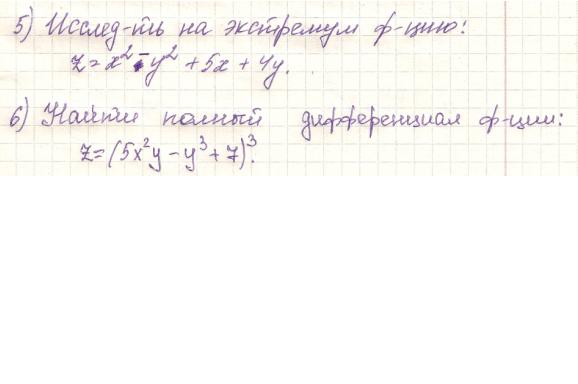 5) Исслед-ть на экстремум ф-цию:
z = x² - y² + 5x + 4y.
6) Найти полный дифференциал ф-ции:
z = (5x²y - y³ + 7)³.